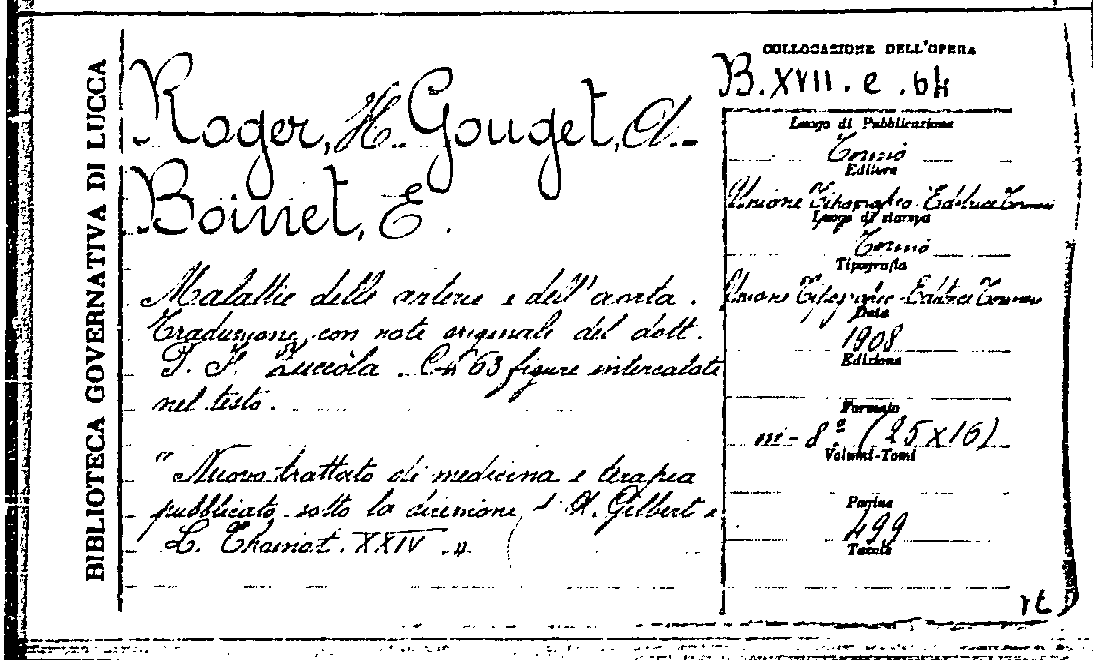 BIBLIOTECA GOVERNATIVA DI LUCCA
Roger, H. Gouget, A.-
Boinet, E.
Malattie delle arterie e dell'aorta.
Traduzione, con note originali del dott.
P. F. Zuccòla. Con 63 figure intercalate
nel testo.
"Nuovo trattato di medicina e terapia
pubblicato sotto la direzione d' A. Gilbert e
L. Thoinot. XXIV."
COLLOCAZIONE DELL'OPERA
B.XVII.e.64
Luogo di Pubblicazione
Torino
Editore
Unione Tipografico-Editrice Torinese
Luogo di stampa
Torino
Tipografia
Unione Tipografico-Editrice Torinese
Data
1908
Edizione
Formato
in-8º (25x16)
Volumi-Tomi
Pagine
499
Tavole